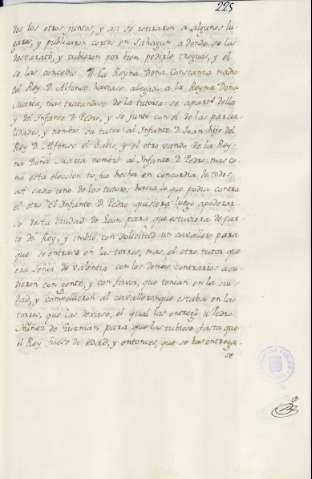 225
dos los otros juntos, y asi se retiraron a algunos lu
gares, y publicaron cortes en Sahagun a donde se las
desbarató, y tubieron por bien pedirle treguas, y el
se las concedio. La Reyna Doña Constanza madre
del Rey D. Alfonso a la Reyna Doña
Maria, que tratandose de la tutoria se apartó della
y del Infante D. Pedro, y se juntó con el de las parcia
lidades, y nombró su tutor al Infante D. Juan hijo del
Rey D. Alfonso el Sabio, y el otro vando de la Rey
na Doña Maria nombró al Infante D. Pedro, mas co
mo esta eleccion no fue hecha en concordia de todos,
asi cada uno de los tutores hacia lo que podia contra
el otro. El Infante D. Pedro quisiera luego apoderar
se desta Ciudad de Leon para que estuviera de par
te del Rey, y imbió con solicitud un cavallero para
que se entrara en las torres, mas el otro tutor que
era Señor de Valencia con los demas contrarios acu
dieron con gente, y con favor, que tenian en la ciu
dad, y compelieron al cavallero que estaba en las
torres, que las dexase, el qual las entregó a Pedro
Nuñez de Guzman, para que las tubiese fasta que
el Rey fuese de edad, y entonces, que se las entrega
se